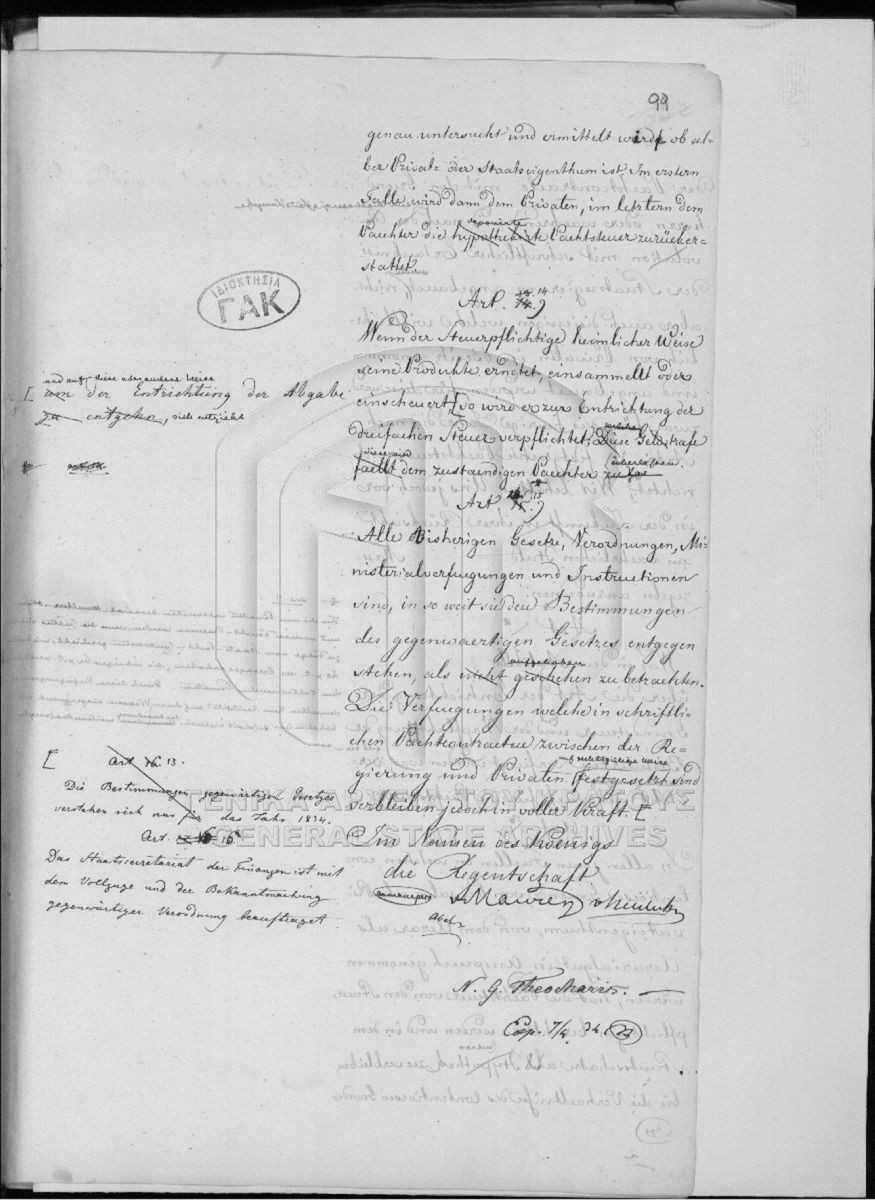 99
genau untersucht und ermittelt werde ob sel-
ber Privat- oder Staatseigenthum ist. Im erstern
Falle wird dann dem Privaten, im letztern dem
deponirte
Paechter die hypothekirte Pachtsteuer zurücker-
stattet.
ΙΔΙΟΚΤΗΣΙΑ
ΓΑΚ
14
Art. 14.)
Wenn der Steuerpflichtige heimlicher Weise
seine Produkte erndtet, einsammelt oder
einscheuert [so wird er zur Entrichtung der
dreifachen Steuer verpflichtet, Diese Geldstrafe
welche
faellt dem zustaendigen Paechter zu
überlassen.
und auf diese Weise
[ um der Entrichtung der Abgabe
zu entgehen, sich entzieht
15
Art. 15.)
Alle Bisherigen Gesetze, Verordnungen, Mi-
nisterialverfuegungen und Instructionen
sind, in so weit sie den Bestimmungen
des gegenwaertigen Gesetzes entgegen
aufgehoben
stehen, als nicht geschehen zu betrachten.
Die Verfuegungen welche in schriftli-
chen Pachtcontracten zwischen der Re-
auf rechtsgültige Weise
gierung und Privaten festgesetzt sind
verbleiben jedoch in voller Kraft. [
[ Art 13.
Die Bestimmungen gegenwärtigen Gesetzes
verstehen sich nur für das Jahr 1834.
Art. 16
Das Staatssecretariat der Finanzen ist mit
dem Vollzuge und der Bekanntmachung
gegenwärtiger Verordnung beauftraget
ΓΕΝΙΚΑ ΑΡΧΕΙΑ ΤΟΥ ΚΡΑΤΟΥΣ
GENERAL STATE ARCHIVES
Im Namen des Koenigs
die Regentschaft
Armansperg vMaurer vHeideck
Abel
N. G. Theocharis.
Exp. 7/4. 34.